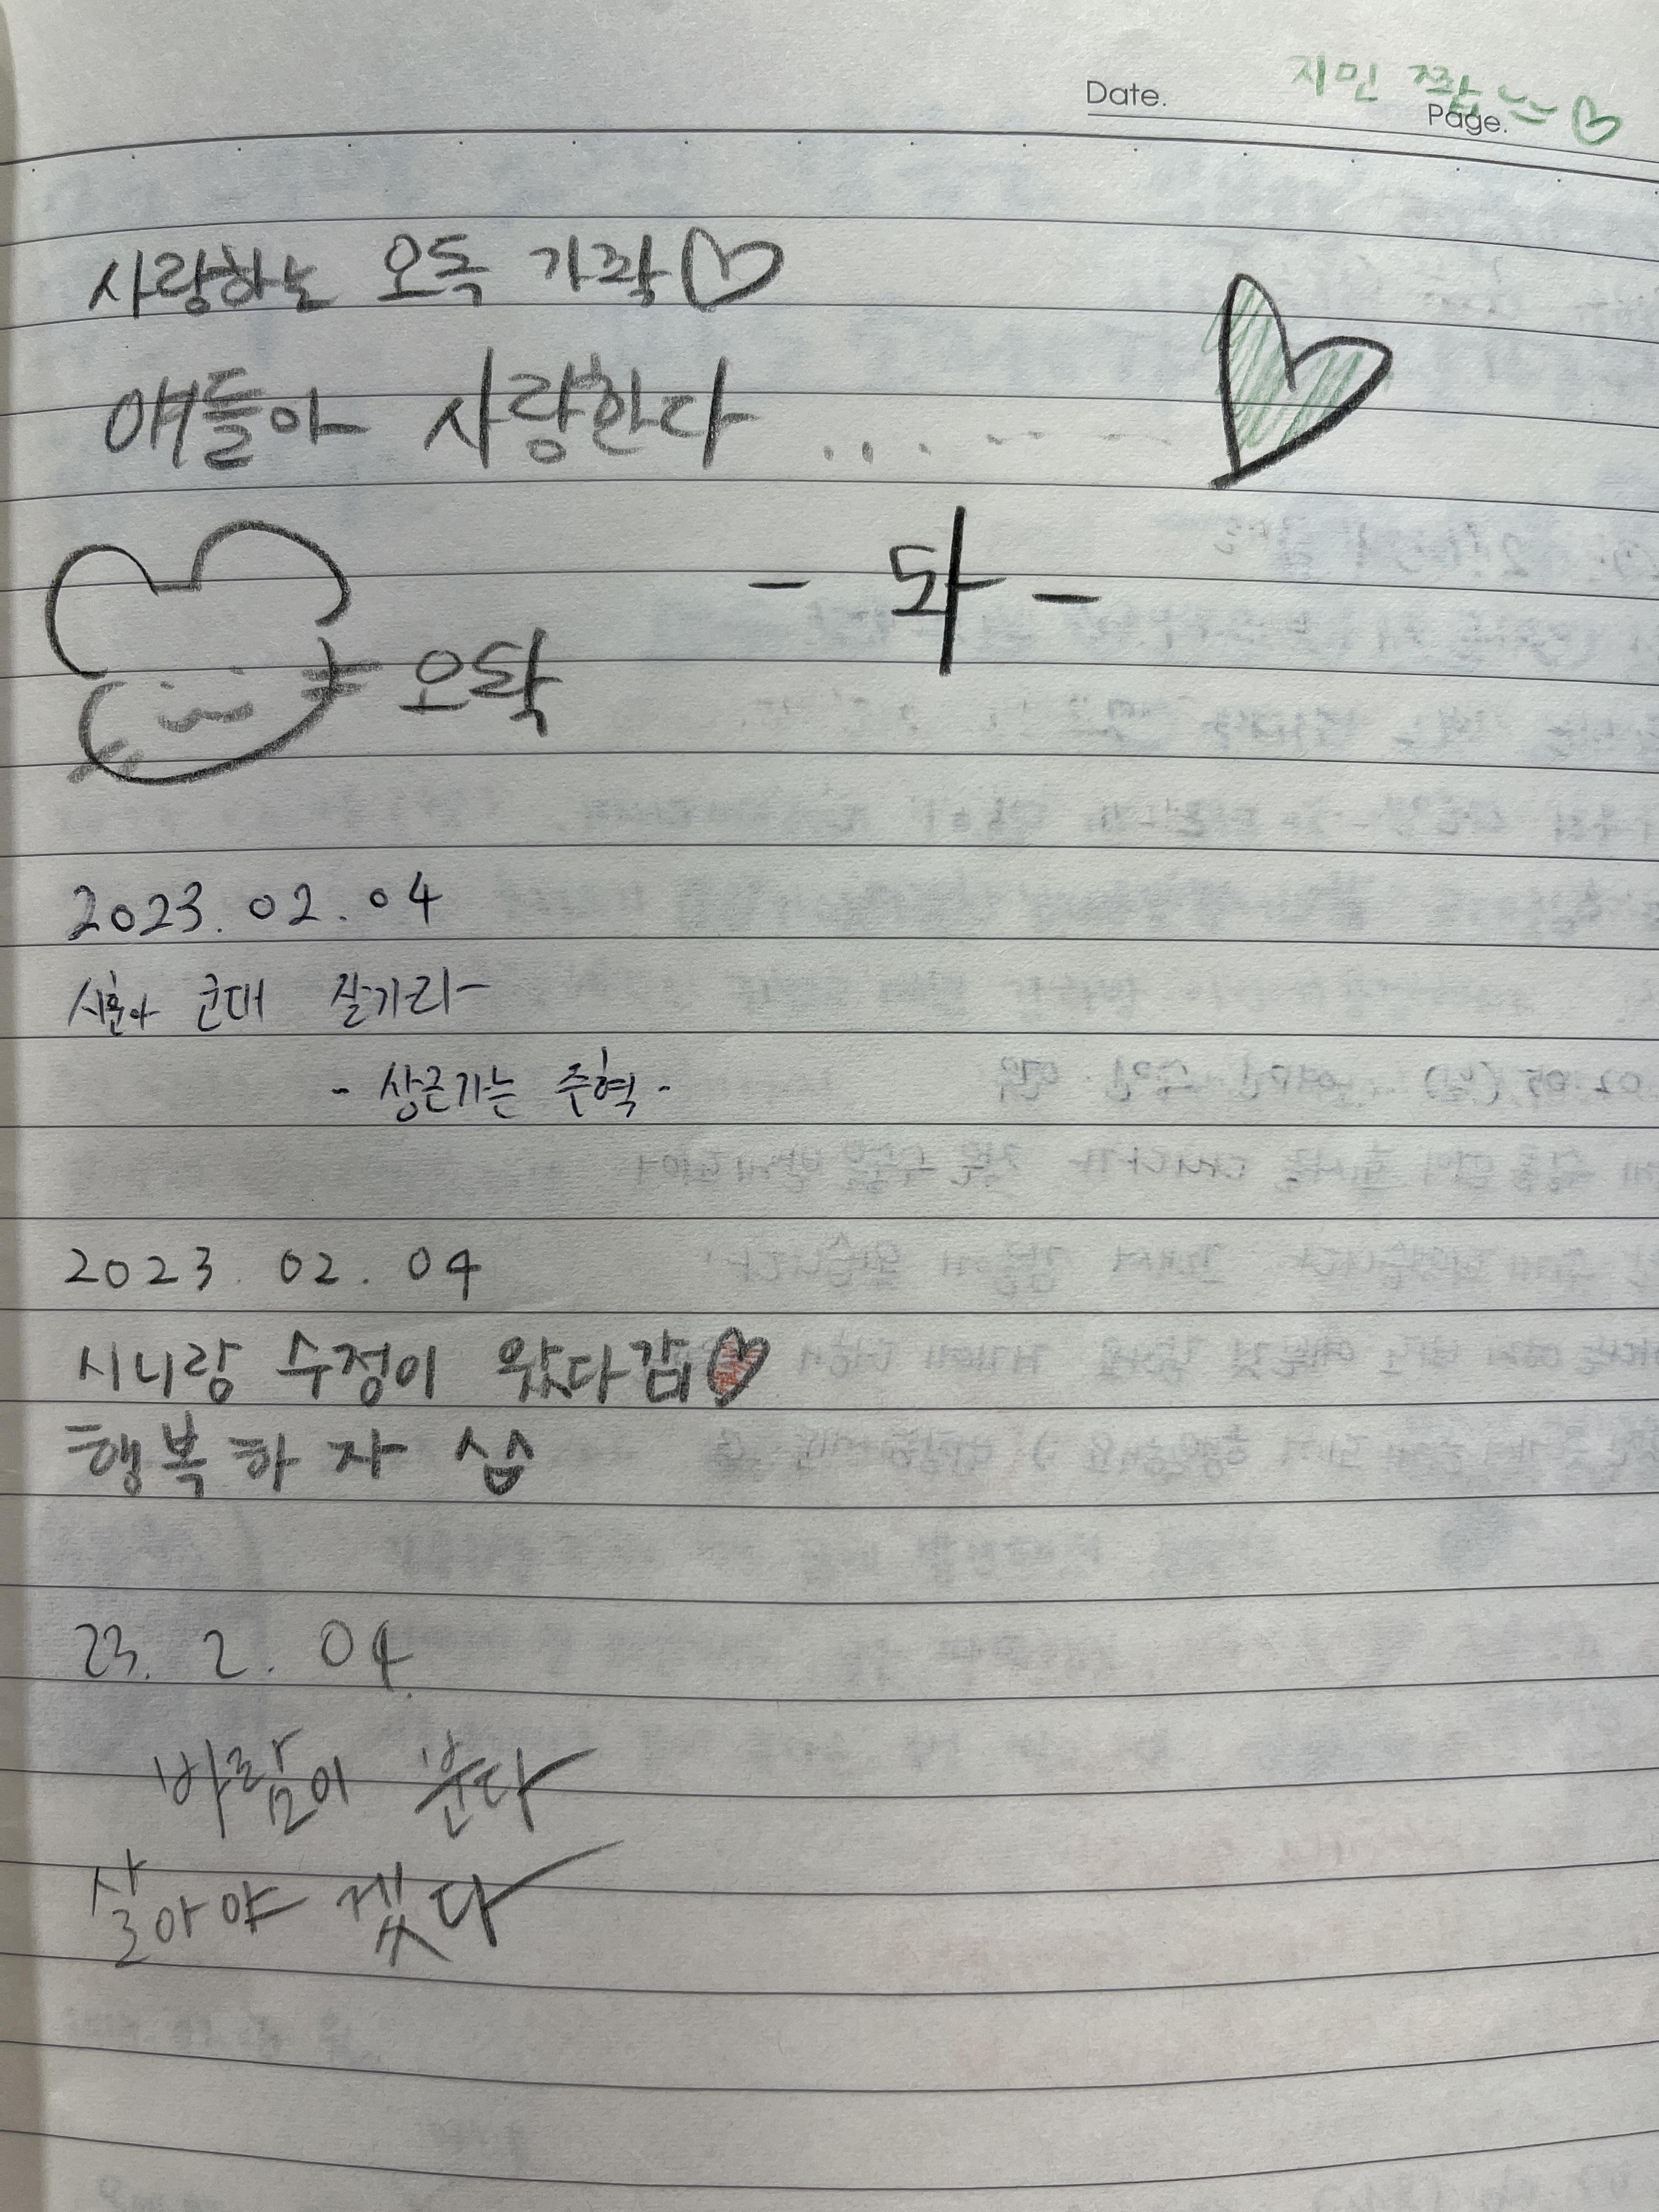 지민 짱 ♡
Date.
Page.
사랑하는 오독 가좍♡
얘들아 사랑한다 ...
- 돠 -
오돡
2023. 02. 04
시훈아 군대 잘가라-
- 상근가는 준혁 -
2023. 02. 04
시니랑 수정이 왔다감♡
행복하자 십
23. 2. 04
바람이 분다
살아야 겠다